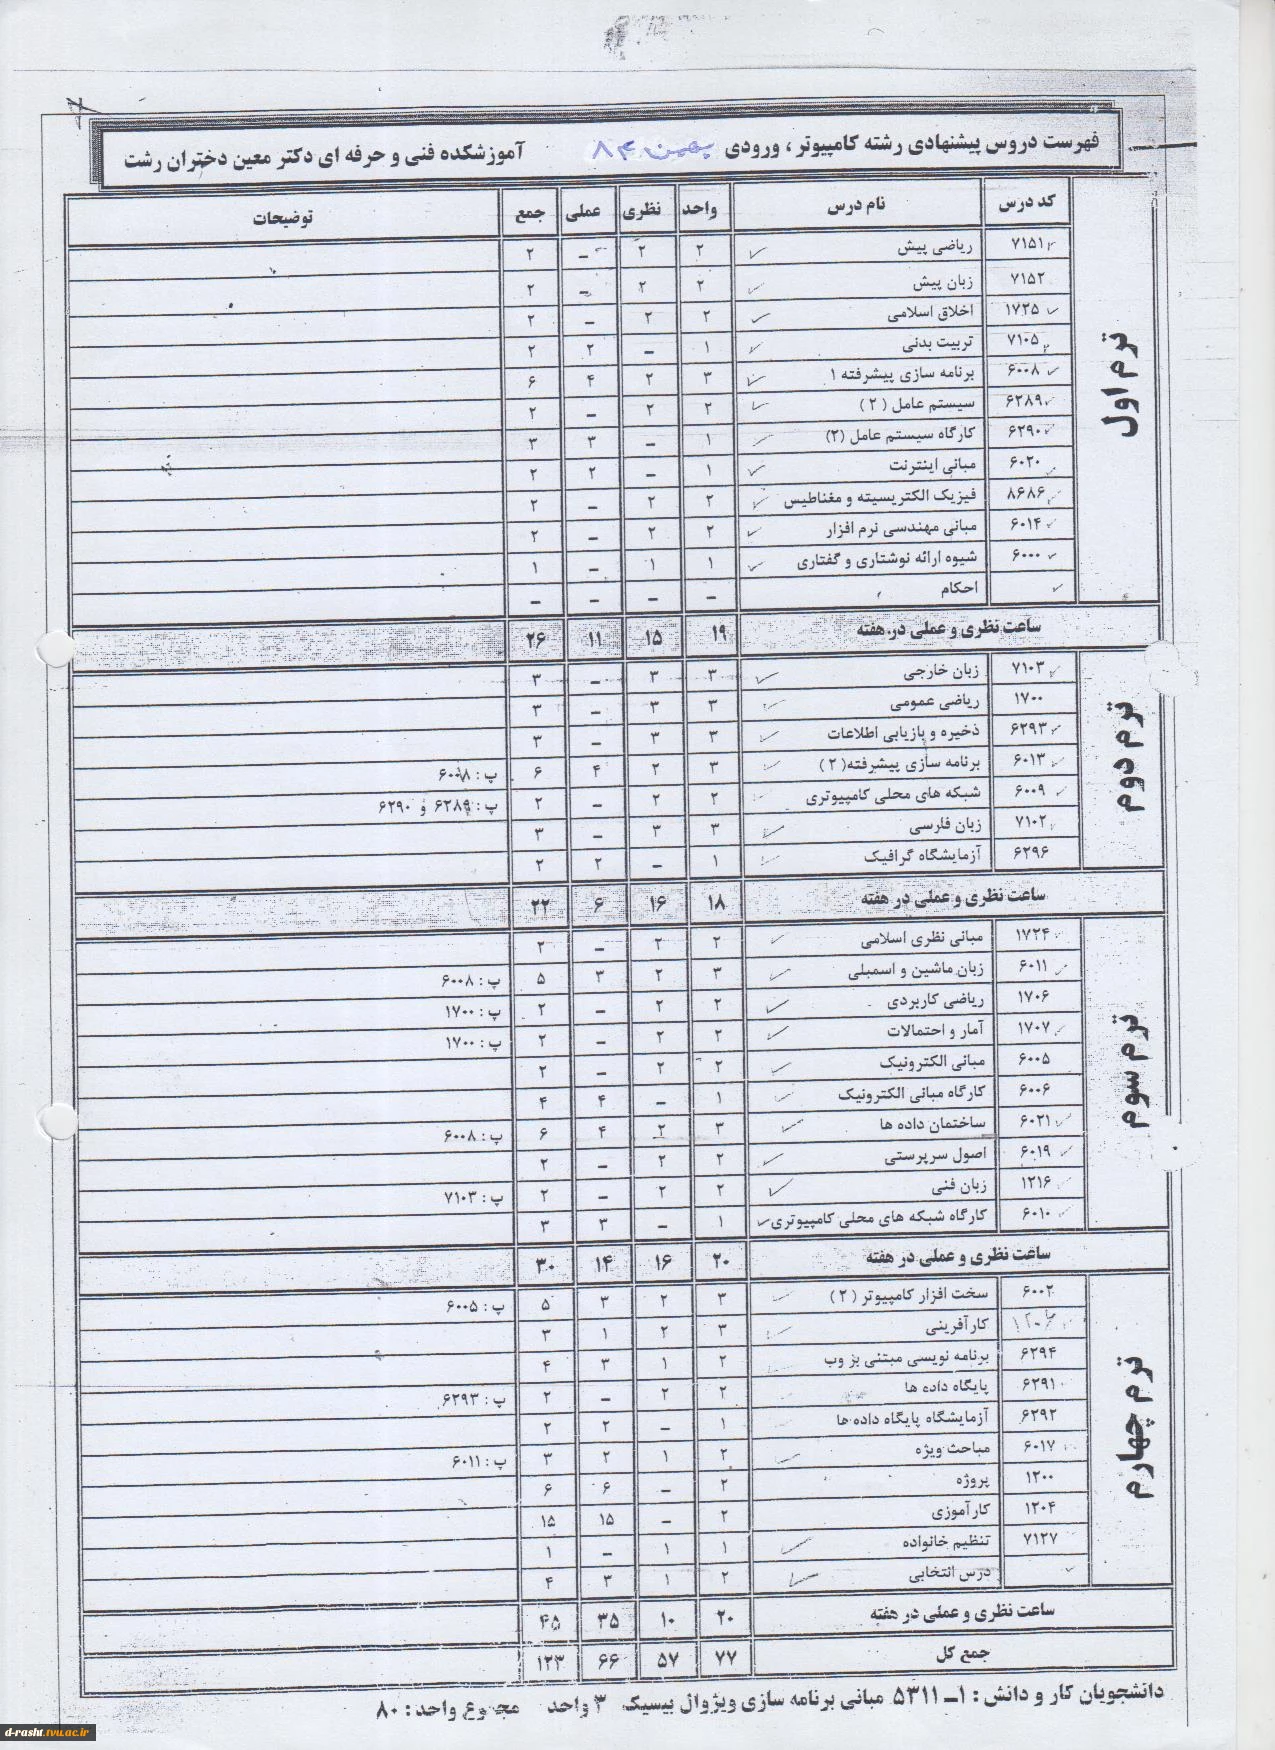 فهرست دروس پیشنهادی رشته کامپیوتر ، ورودی بهمن ۸۴ آموزشکده فنی و حرفه ای دکتر معین دختران رشت
کد درس نام درس واحد نظری عملی جمع توضیحات
ترم اول
۷۱۵۱ ریاضی پیش ۲ ۲ – ۲
۷۱۵۲ زبان پیش ۲ ۲ – ۲
۱۷۲۵ اخلاق اسلامی ۲ ۲ – ۲
۷۱۰۵ تربیت بدنی ۱ – ۲ ۲
۶۰۰۸ برنامه سازی پیشرفته ۱ ۳ ۲ ۴ ۶
۶۲۸۹ سیستم عامل ( ۲ ) ۲ ۲ – ۲
۶۲۹۰ کارگاه سیستم عامل (۲) ۱ – ۳ ۳
۶۰۲۰ مبانی اینترنت ۱ – ۲ ۲
۸۶۸۶ فیزیک الکتریسیته و مغناطیس ۲ ۲ – ۲
۶۰۱۴ مبانی مهندسی نرم افزار ۲ ۲ – ۲
۶۰۰۰ شیوه ارائه نوشتاری و گفتاری ۱ ۱ – ۱
احکام – – – –
ساعت نظری و عملی در هفته ۱۹ ۱۵ ۱۱ ۲۶
ترم دوم
۷۱۰۳ زبان خارجی ۳ ۳ – ۳
۱۷۰۰ ریاضی عمومی ۳ ۳ – ۳
۶۲۹۳ ذخیره و بازیابی اطلاعات ۳ ۳ – ۳
۶۰۱۳ برنامه سازی پیشرفته( ۲ ) ۳ ۲ ۴ ۶ پ : ۶۰۰۸
۶۰۰۹ شبکه های محلی کامپیوتری ۲ ۲ – ۲ پ : ۶۲۸۹ و ۶۲۹۰
۷۱۰۲ زبان فارسی ۳ ۳ – ۳
۶۲۹۶ آزمایشگاه گرافیک ۱ – ۲ ۲
ساعت نظری و عملی در هفته ۱۸ ۱۶ ۶ ۲۲
ترم سوم
۱۷۲۴ مبانی نظری اسلامی ۲ ۲ – ۲
۶۰۱۱ زبان ماشین و اسمبلی ۳ ۲ ۳ ۵ پ : ۶۰۰۸
۱۷۰۶ ریاضی کاربردی ۲ ۲ – ۲ پ : ۱۷۰۰
۱۷۰۷ آمار و احتمالات ۲ ۲ – ۲ پ : ۱۷۰۰
۶۰۰۵ مبانی الکترونیک ۲ ۲ – ۲
۶۰۰۶ کارگاه مبانی الکترونیک ۱ – ۴ ۴
۶۰۲۱ ساختمان داده ها ۳ ۲ ۴ ۶ پ : ۶۰۰۸
۶۰۱۹ اصول سرپرستی ۲ ۲ – ۲
۱۲۱۶ زبان فنی ۲ ۲ – ۲ پ : ۷۱۰۳
۶۰۱۰ کارگاه شبکه های محلی کامپیوتری ۱ – ۳ ۳
ساعت نظری و عملی در هفته ۲۰ ۱۶ ۱۴ ۳۰
ترم چهارم
۶۰۰۲ سخت افزار کامپیوتر ( ۲ ) ۳ ۲ ۳ ۵ پ : ۶۰۰۵
کارآفرینی ۳ ۲ ۱ ۳
۶۲۹۴ برنامه نویسی مبتنی بر وب ۲ ۱ ۳ ۴
۶۲۹۱ پایگاه داده ها ۲ ۲ – ۲ پ : ۶۲۹۳
۶۲۹۲ آزمایشگاه پایگاه داده ها ۱ – ۲ ۲
۶۰۱۷ مباحث ویژه ۲ ۱ ۲ ۳ پ : ۶۰۱۱
۱۲۰۰ پروژه ۲ – ۶ ۶
۱۲۰۴ کارآموزی ۲ – ۱۵ ۱۵
۷۱۲۷ تنظیم خانواده ۱ ۱ – ۱
درس انتخابی ۲ ۱ ۳ ۴
ساعت نظری و عملی در هفته ۲۰ ۱۰ ۳۵ ۴۵
جمع کل ۷۷ ۵۷ ۶۶ ۱۲۳
دانشجویان کار و دانش : ۱–۵۳۱۱ مبانی برنامه سازی ویژوال بیسیک ۳ واحد مجموع واحد : ۸۰
d-rasht.tvu.ac.ir